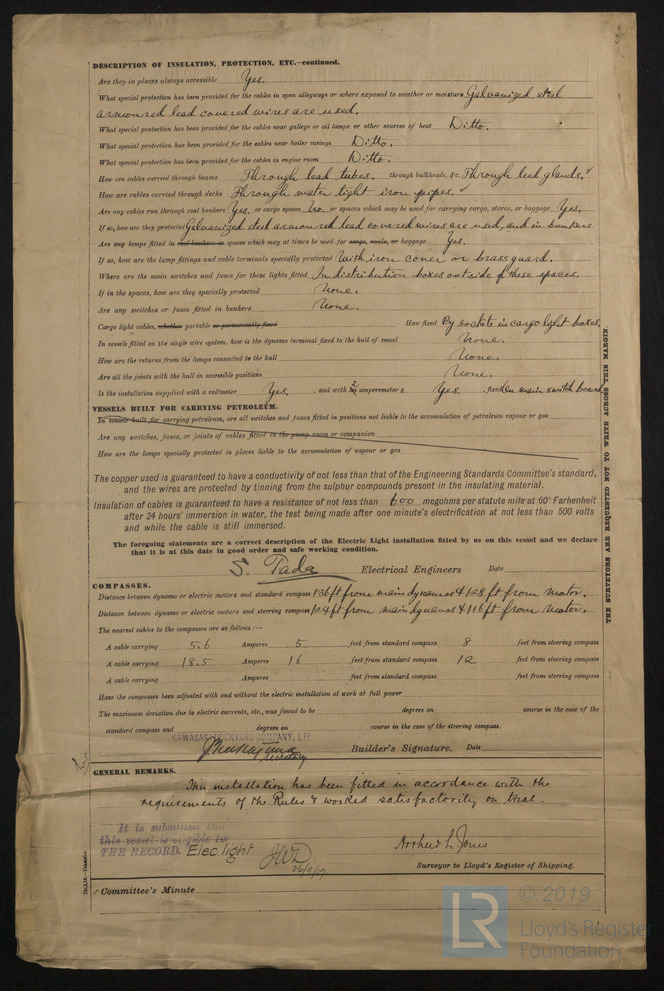 DESCRIPTION OF INSULATION, PROTECTION, ETC.—continued.
Are they in places always accessible Yes.
What special protection has been provided for the cables in open alleyways or where exposed to weather or moisture Galvanized steel
armoured lead covered wires are used.
What special protection has been provided for the cables near galleys or oil lamps or other sources of heat Ditto.
What special protection has been provided for the cables near boiler casings Ditto.
What special protection has been provided for the cables in engine room Ditto.
How are cables carried through beams Through lead tubes. through bulkheads, &c. Through lead glands.
How are cables carried through decks Through water tight iron pipes.
Are any cables run through coal bunkers Yes. or cargo spaces No. or spaces which may be used for carrying cargo, stores, or baggage Yes.
If so, how are they protected Galvanized steel armoured lead covered wires are used, and in bunkers
Are any lamps fitted in coal bunkers or spaces which may at times be used for cargo, coals, or baggage Yes.
If so, how are the lamp fittings and cable terminals specially protected With iron cover or brass guard.
Where are the main switches and fuses for these lights fitted In distribution boxes outside of these spaces.
If in the spaces, how are they specially protected None.
Are any switches or fuses fitted in bunkers None.
Cargo light cables, whether portable or permanently fixed How fixed By sockets in cargo light boxes.
In vessels fitted on the single wire system, how is the dynamo terminal fixed to the hull of vessel None.
How are the returns from the lamps connected to the hull None.
Are all the joints with the hull in accessible positions None.
Is the installation supplied with a voltmeter Yes. and with 2 amperemeters Yes, fixed On main switch board
VESSELS BUILT FOR CARRYING PETROLEUM.
In vessels built for carrying petroleum, are all switches and fuses fitted in positions not liable to the accumulation of petroleum vapour or gas
Are any switches, fuses, or joints of cables fitted in the pump room or companion
How are the lamps specially protected in places liable to the accumulation of vapour or gas
The copper used is guaranteed to have a conductivity of not less than that of the Engineering Standards Committee's standard,
and the wires are protected by tinning from the sulphur compounds present in the insulating material.
Insulation of cables is guaranteed to have a resistance of not less than 600 megohms per statute mile at 60° Farhenheit
after 24 hours' immersion in water, the test being made after one minute's electrification at not less than 500 volts
and while the cable is still immersed.
The foregoing statements are a correct description of the Electric Light installation fitted by us on this vessel and we declare
that it is at this date in good order and safe working condition.
S. Tada Electrical Engineers Date
COMPASSES.
Distance between dynamo or electric motors and standard compass 136 ft from main dynamos & 128 ft from motor.
Distance between dynamo or electric motors and steering compass 124 ft from main dynamos & 116 ft from motor.
The nearest cables to the compasses are as follows:—
A cable carrying 5.6 Amperes 5 feet from standard compass 8 feet from steering compass
A cable carrying 18.5 Amperes 16 feet from standard compass 12 feet from steering compass
A cable carrying Amperes feet from standard compass feet from steering compass
Have the compasses been adjusted with and without the electric installation at work at full power
The maximum deviation due to electric currents, etc., was found to be degrees on course in the case of the
standard compass and degrees on course in the case of the steering compass.
KAWASAKI DOCKYARD COMPANY, LTD
Secretary Builder's Signature. Date
GENERAL REMARKS.
This installation has been fitted in accordance with the
requirements of the Rules & worked satisfactorily on trial.
It is submitted that
this vessel is eligible for
THE RECORD. Elec. light.
JWD
26/9/17
Arthur L. Jones
Surveyor to Lloyd's Register of Shipping.
Committee's Minute
THE SURVEYORS ARE REQUESTED NOT TO WRITE ACROSS THIS MARGIN.
LR
© 2019
Lloyd's Register
Foundation